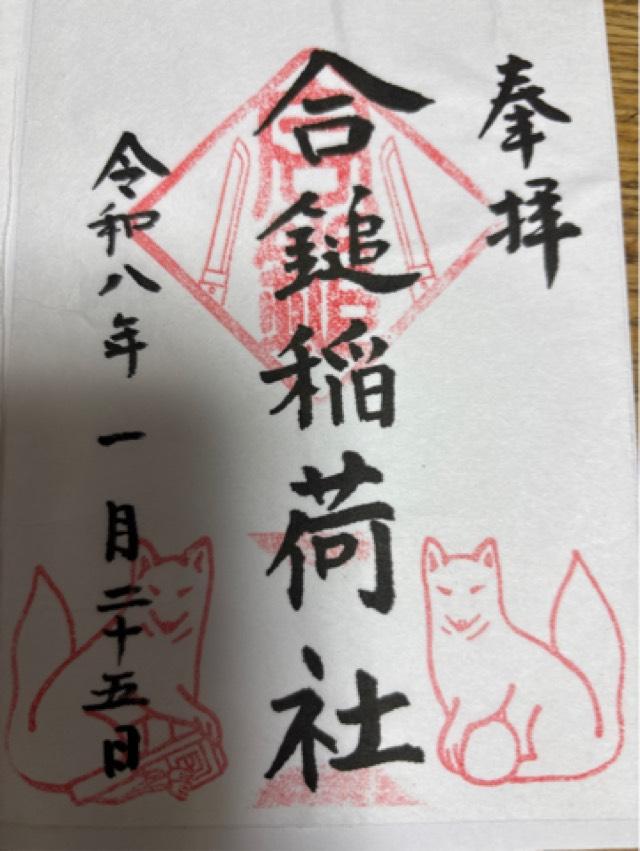 奉拝
合鎚稲荷社
令和八年一月二十五日